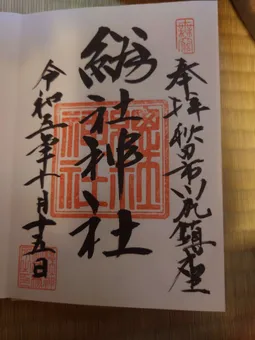 奉拝 秋田市川尻鎮座
総社神社
令和五年十月十五日